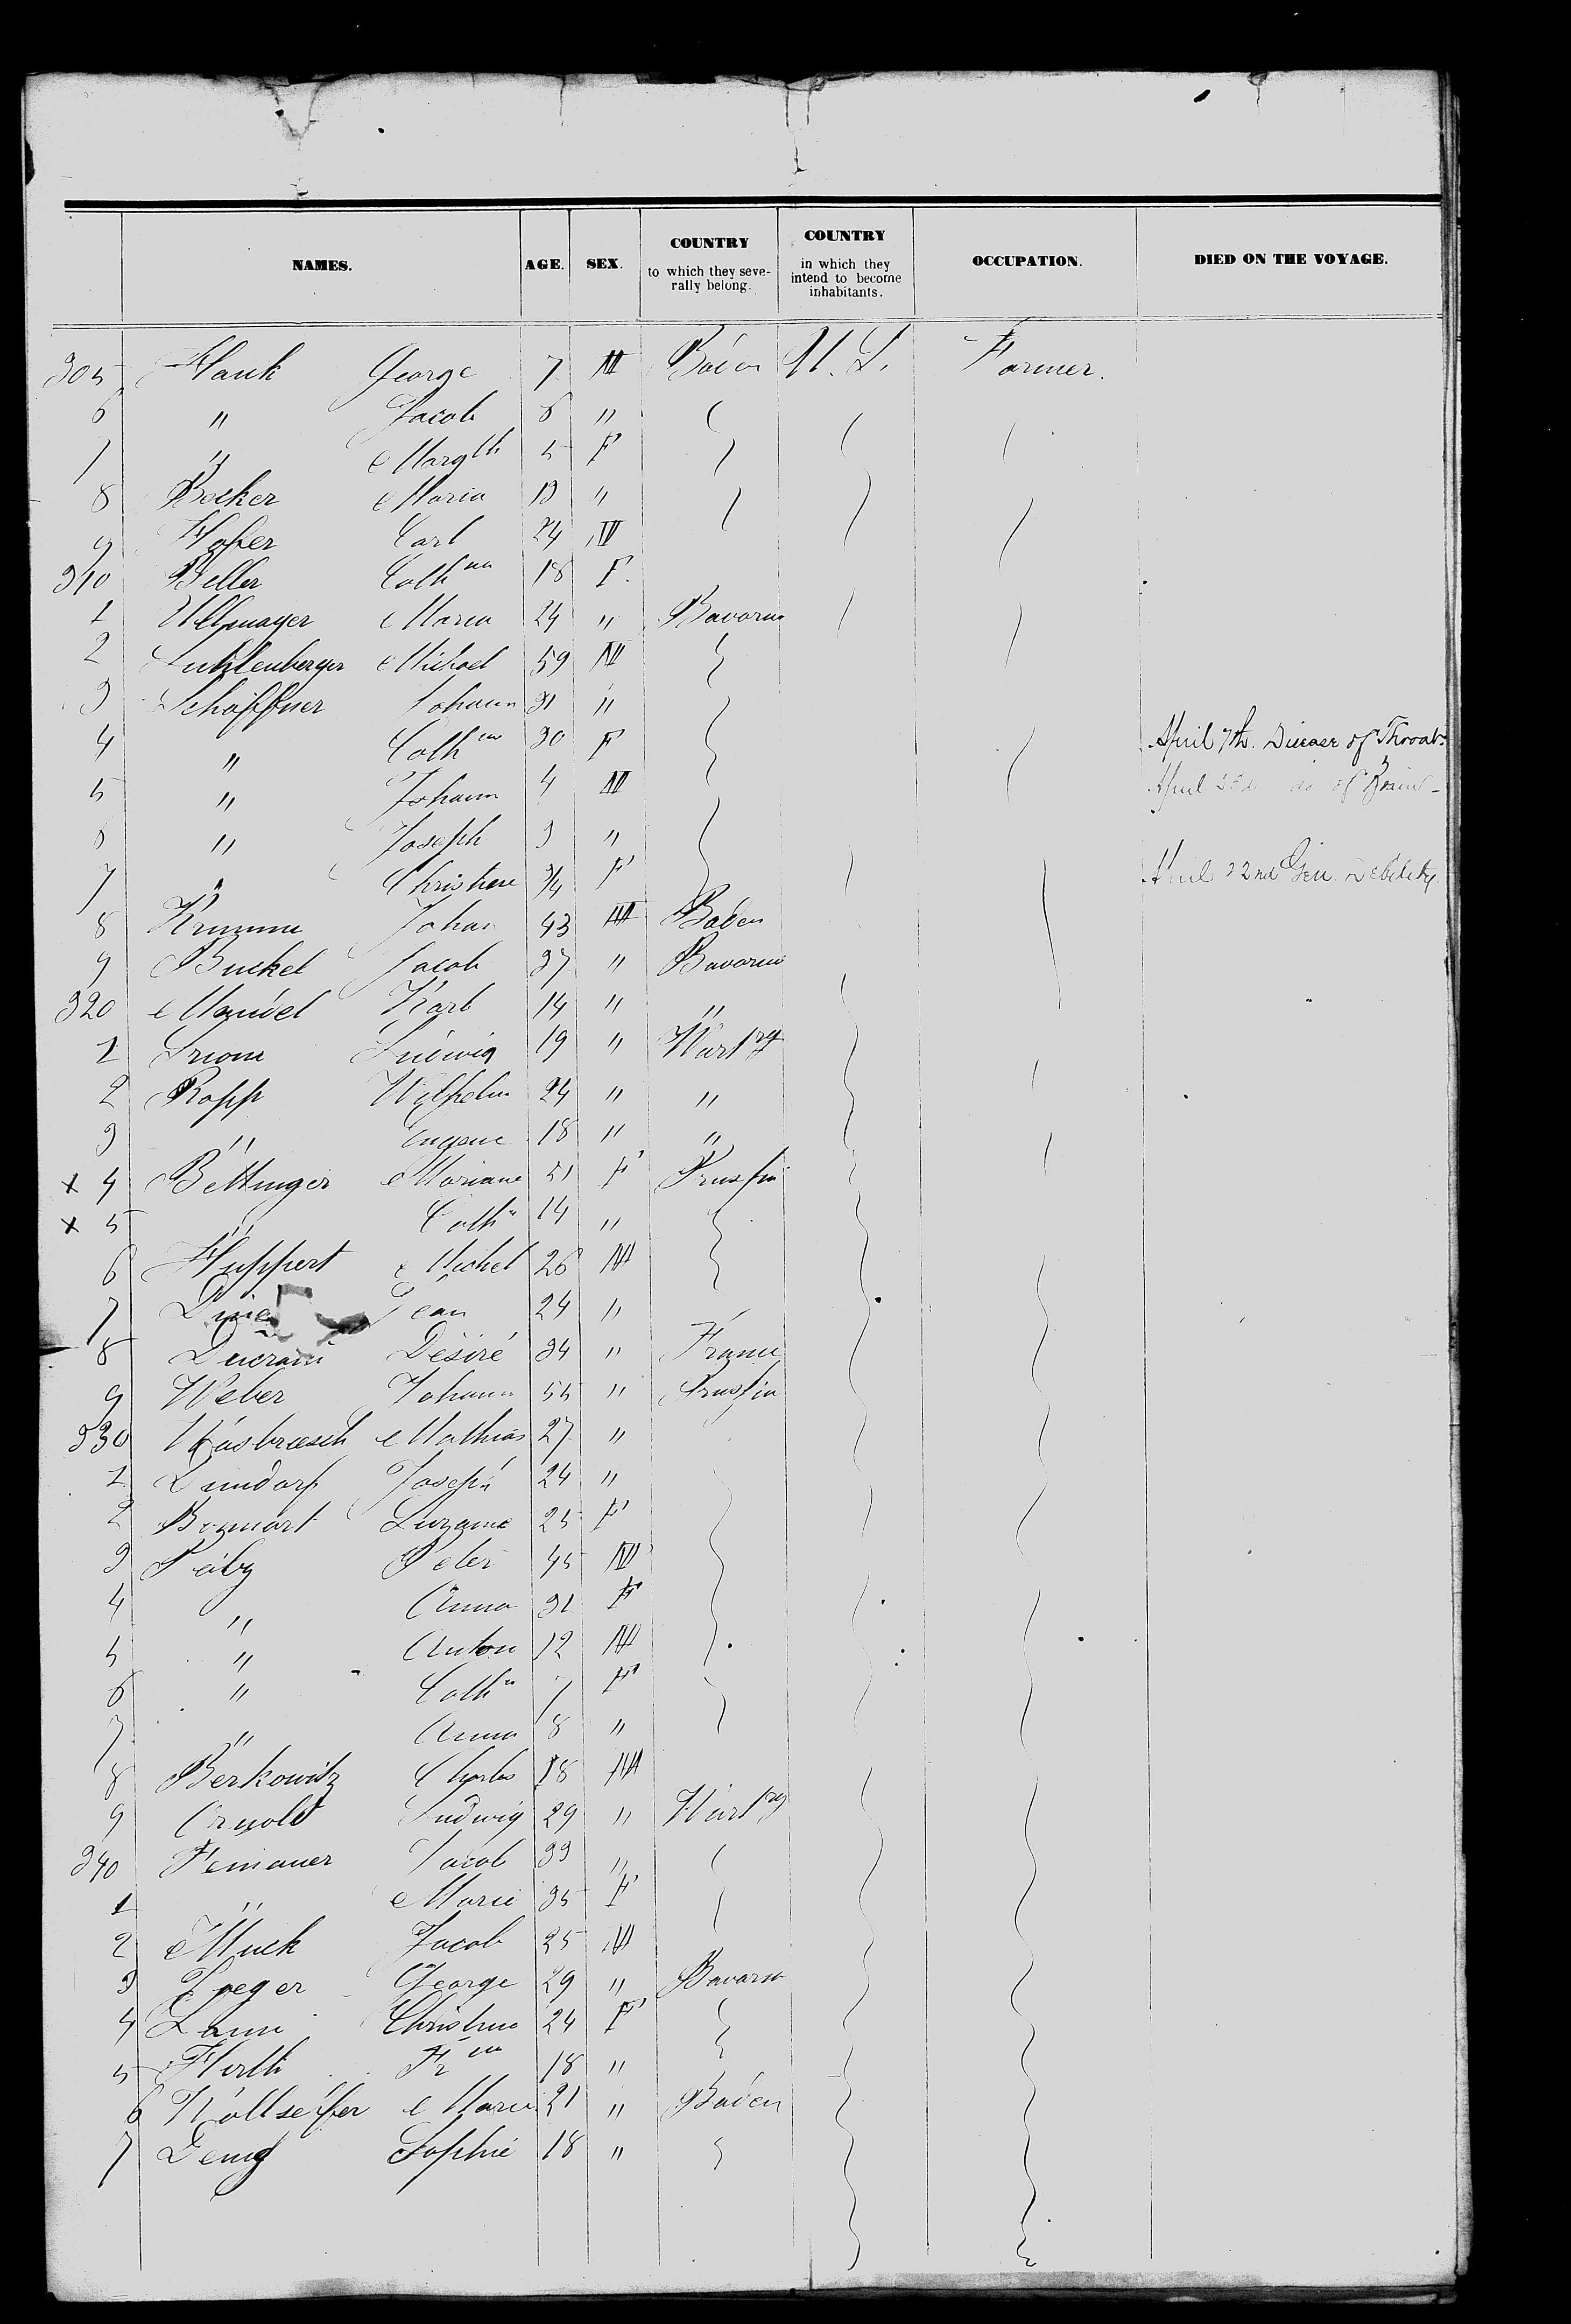 NAMES. AGE. SEX. COUNTRY to which they severally belong. COUNTRY in which they intend to become inhabitants. OCCUPATION. DIED ON THE VOYAGE.
305 Hauk George 7 M Baden U. S. Farmer.
6 " Jacob 6 "
7 " Margth 5 F
8 Becker Maria 19 "
9 Hofer Carl 24 M
310 Beller Cathna 18 F.
1 Maria 24 " Bavaria
2 Michael 59 M
3 Schäffner Johann 31 "
4 " Cath 30 F April 7th. Disease of Throat
5 " Johann 4 M April do of Brain -
6 " Joseph 3 "
7 " Christine 3/4 F April 22nd Gen. Debility
8 Krumm Johan 43 M Baden
9 Buckel Jacob 37 " Bavaria
320 Mandel Karl 14 " "
1 Ludwig 19 " Wurtbg
2 Rapp Wilhelm 24 " "
3 " Eugene 18 " "
x 4 Bettinger Mariane 51 F Prussia
x 5 " Cathn 14 "
6 Huppert Michel 26 M
7 Jean 24 "
8 Désiré 34 " France
9 Weber Johann 55 " Prussia
330 Mathias 27 "
1 Joseph 24 "
2 Suzame 25 F
3 Peter 45 M
4 " Anna 31 F
5 " Anton 12 M
6 " Cathn 7 F
7 " Anna 8 "
8 Berkowitz Charles 18 M
9 Arnold Ludwig 29 " Wurtbg
340 Jacob 33 "
1 " Marie 35 F
2 Muck Jacob 25 M
3 George 29 " Bavaria
4 Christina 24 F
5 Hirth 18 "
6 Maria 21 " Baden
7 Sophie 18 "